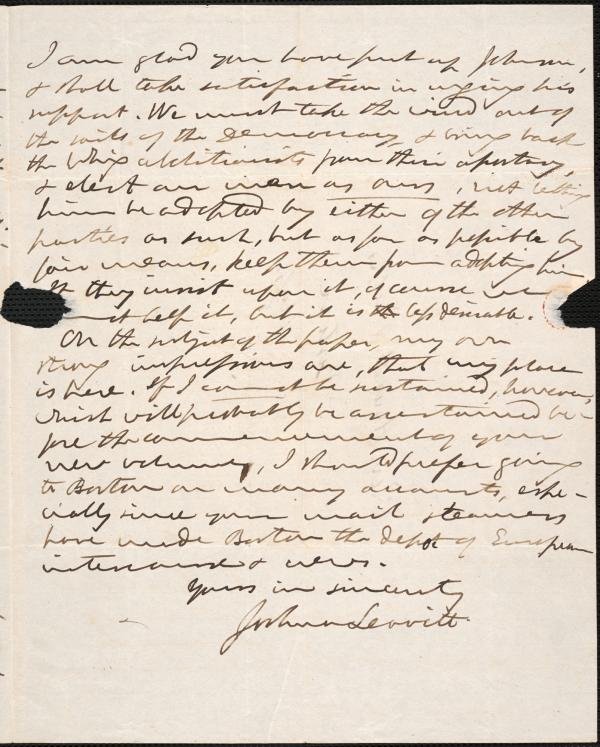 I am glad you have put up Johnson,
& shall take satisfaction in urging his
support. We must take the wind out of
the sails of the Democracy & bring back
the Whig abolitionists from their apostasy,
& elect our men as ours, not letting
him be adopted by either of the other
parties as such, but as far as possible by
fair means, keep them from adopting him
If they insist upon it, of course we
cannot help it, but it is less desirable.
On the subject of the paper, my own
strong impressions are, that my place
is here. If I cannot be sustained, however,
which will probably be ascertained be-
fore the commencement of your
new volume, I should prefer going
to Boston on many accounts, espe-
cially since your mail steamers
have made Boston the depot of European
intercourse & news.
Yours in sincerity
Joshua Leavitt